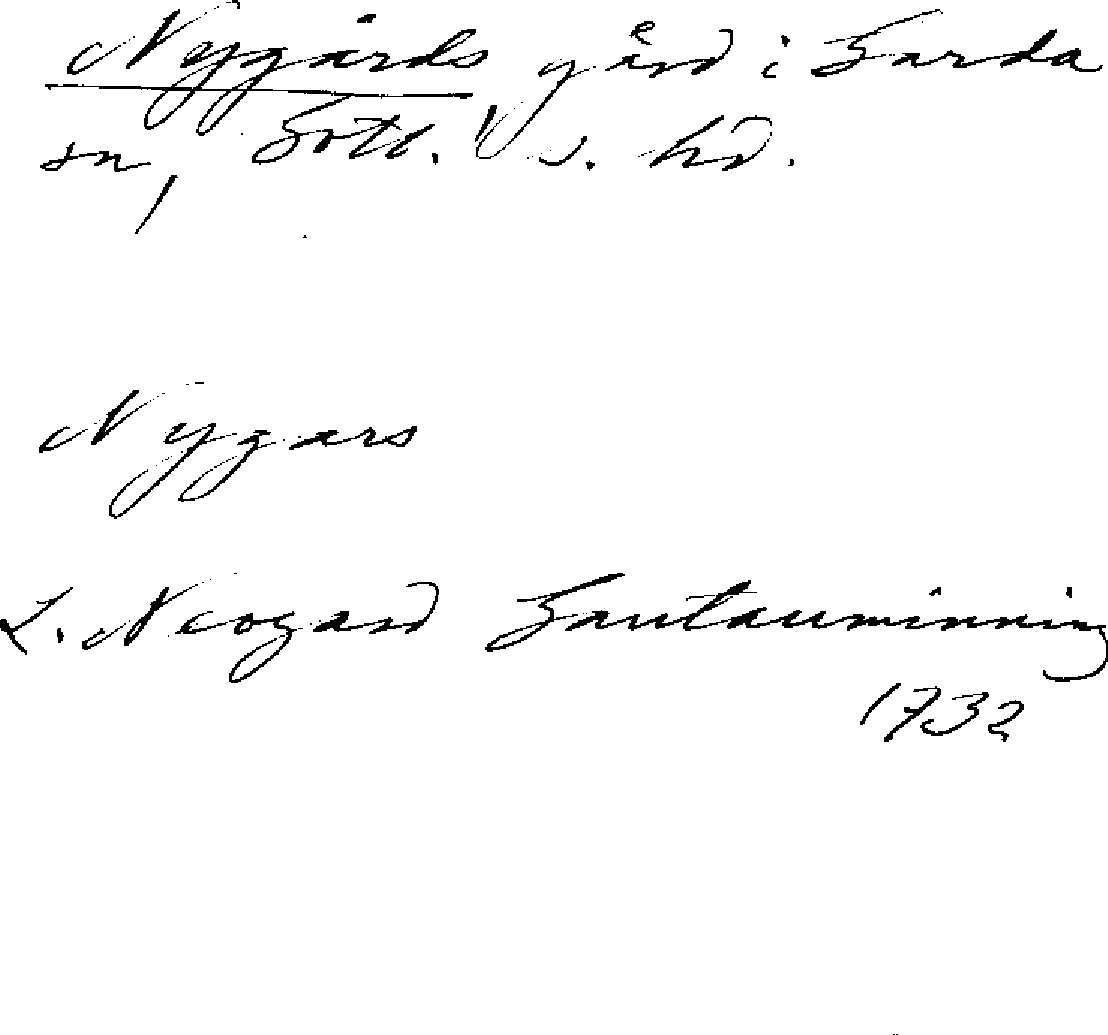 Nygårds gård i Garda
sn, Gotl. s. hd.
Nygars
L. Neogard Gautauminning
1732